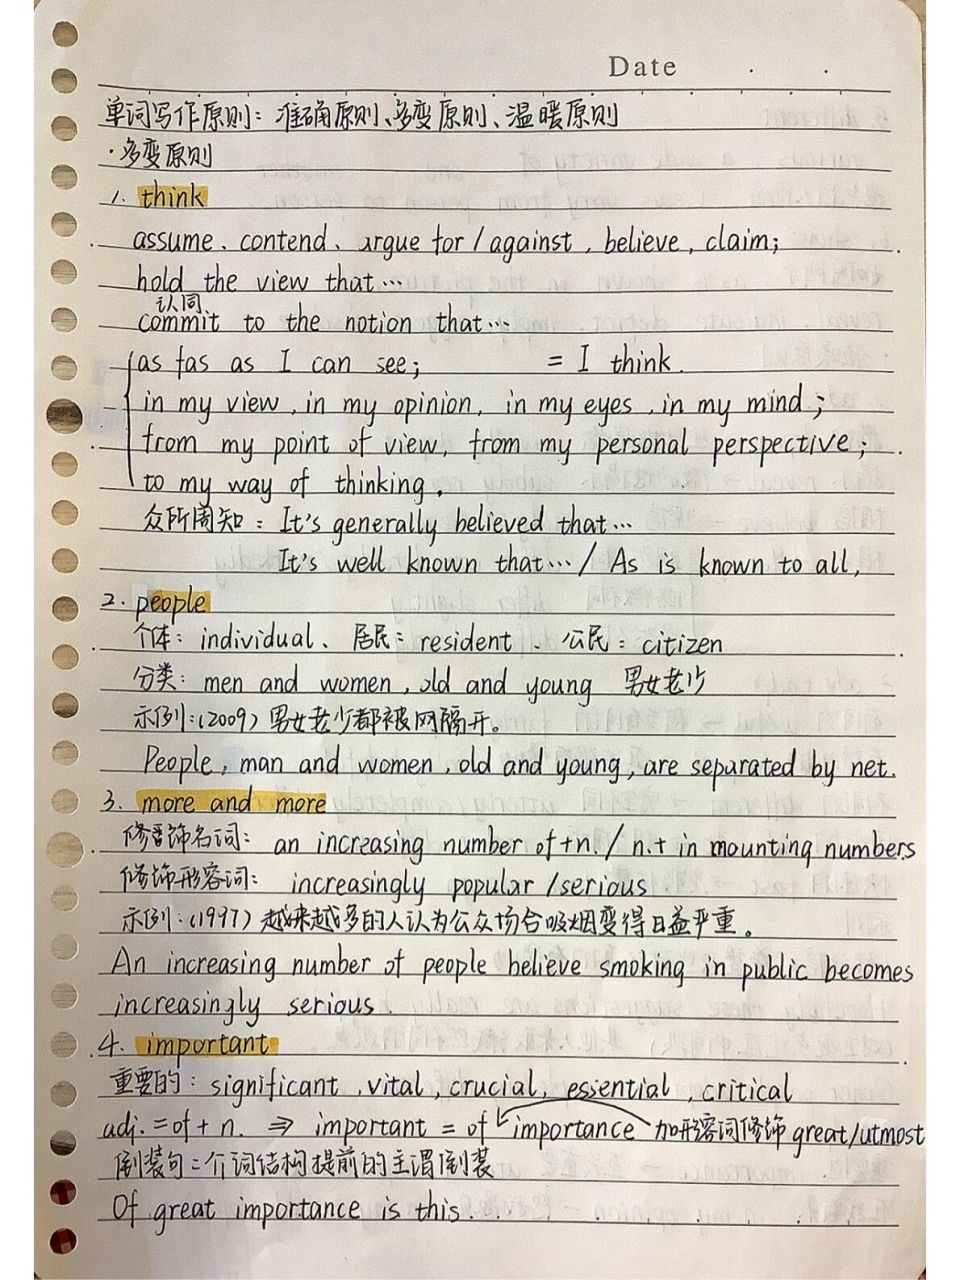 Date
单词写作原则：准确原则、多变原则、温暖原则
·多变原则
1. think
assume、contend、argue for/against, believe, claim;
hold the view that…
认同
commit to the notion that…
as fas as I can see; = I think.
in my view, in my opinion, in my eyes, in my mind;
from my point of view, from my personal perspective;
to my way of thinking.
众所周知：It's generally believed that…
It's well known that…/ As is known to all,
2. people
个体：individual、居民：resident、公民：citizen
分类：men and women, old and young 男女老少
示例：(2009) 男女老少都被网隔开。
People, man and women, old and young, are separated by net.
3. more and more
修饰名词：an increasing number of+n./ n.+ in mounting numbers
修饰形容词：increasingly popular/serious
示例：(1997) 越来越多的人认为公众场合吸烟变得日益严重。
An increasing number of people believe smoking in public becomes
increasingly serious.
4. important
重要的：significant, vital, crucial, essential, critical
adj.=of+n. ⇒ important = of importance 加形容词修饰 great/utmost
倒装句：介词结构提前的主谓倒装
Of great importance is this......